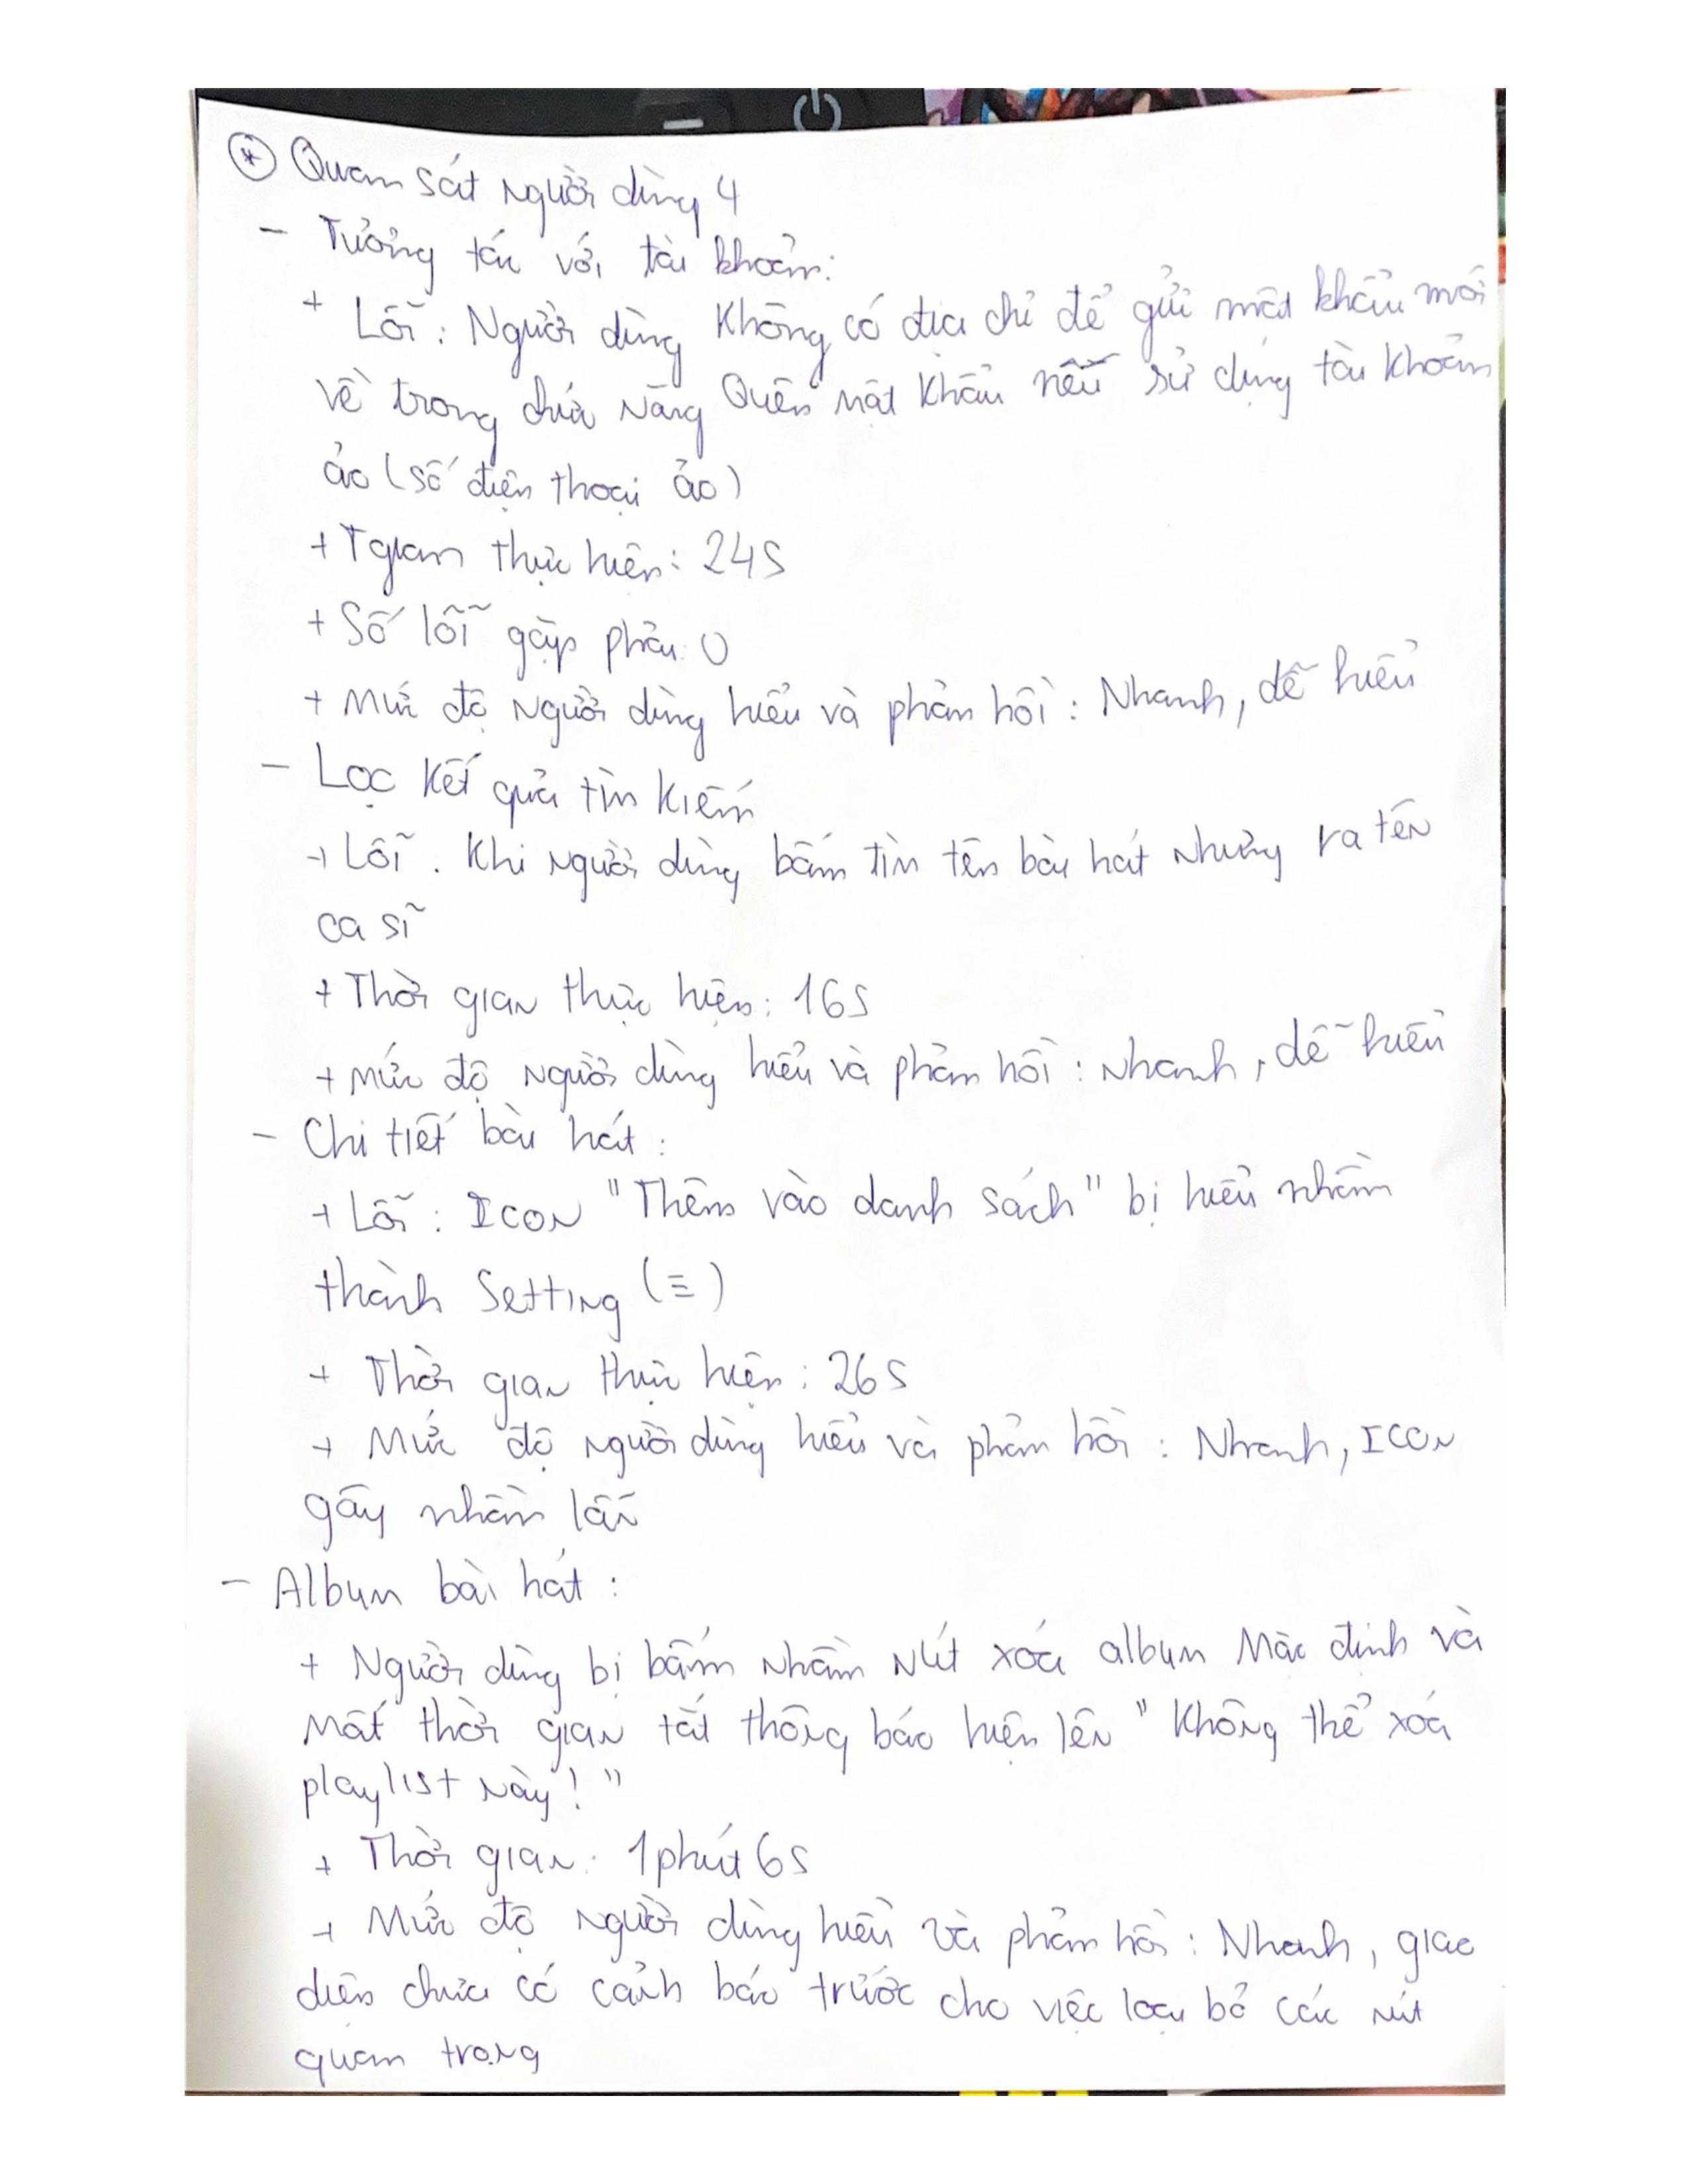 * Quan sát người dùng 4
- Tương tác với tài khoản:
+ Lỗi: Người dùng không có địa chỉ để gửi mật khẩu mới
về trong chức năng Quên mật khẩu nếu sử dụng tài khoản
ảo (số điện thoại ảo)
+ Tgian thực hiện: 24s
+ Số lỗi gặp phải: 0
+ Mức độ người dùng hiểu và phản hồi: Nhanh, dễ hiểu
- Lọc kết quả tìm kiếm
+ Lỗi. Khi người dùng bấm tìm tên bài hát nhưng ra tên
ca sĩ
+ Thời gian thực hiện: 16s
+ Mức độ người dùng hiểu và phản hồi: Nhanh, dễ hiểu
- Chi tiết bài hát:
+ Lỗi: Icon "Thêm vào danh sách" bị hiểu nhầm
thành Setting (≡)
+ Thời gian thực hiện: 26s
+ Mức độ người dùng hiểu và phản hồi: Nhanh, Icon
gây nhầm lẫn
- Album bài hát:
+ Người dùng bị bấm nhầm nút xoá album Mặc định và
mất thời gian tắt thông báo hiện lên "Không thể xoá
playlist này!"
+ Thời gian: 1phút 6s
+ Mức độ người dùng hiểu và phản hồi: Nhanh, giao
diện chưa có cảnh báo trước cho việc loại bỏ các nút
quan trọng